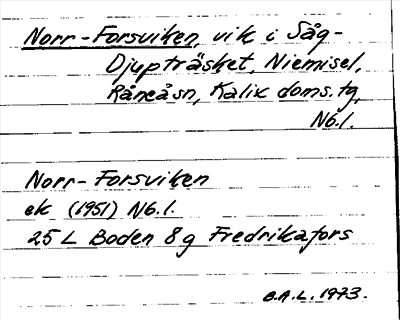 Norr-Forsviken, vik i Såg-
Djupträsket, Niemisel,
Råneåsn, Kalix doms.tg,
Nb.l.
Norr-Forsviken
ek (1951) Nb.l.
25 L Boden 8g Fredrikafors
E.A.L. 1973.